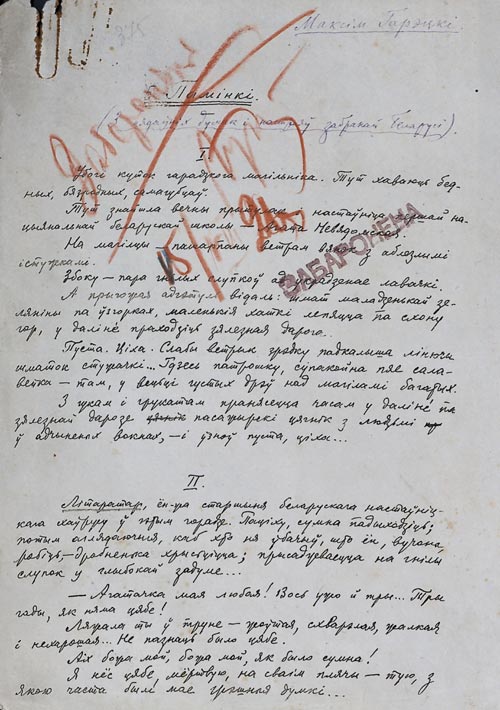 Максім Гарэцкі.
375
Памінкі.
Забаронена
забранай Беларусі).
I
Убогі куток гарадзкога магільніка. Тут хаваюць бед-
ных, бязродных, самагубцаў.
Тут знайшла вечны прытулак настаўніца першай на-
цыянальнай беларускай школы — Агата Невядомская.
На магілцы — пашарпаны ветрам вянок з аблезлымі
істужкамі.
Збоку — пара гнілых слупкоў ад украдзенае лавачкі.
А прыгожая адгэтуль відаль: шмат маладзенькай зе-
ляніны па ўзгорках, маленькія хаткі лепяцца па схону
гор, у даліне праходзіць зялезная дарога..
ЗАБАРОНЕНА
Пуста. Ціха. Слабы ветрык зрэдку падкалыша лінючы
шматок стужачкі... Гдзесь патрошку, супакойна пяе сала-
вейка — там, у вецьці густых дрэў над магіламі багатых.
З гукам і грукатам пранясецца часам у даліне па
зялезнай дарозе пасажырскі цягнік з людзьмі
ў адчыненых вокнах, — і ўзноў пуста, ціха...
II.
Літаратар, ён-жа старшыня беларускага настаўніц-
кага хаўрусу ў тым горадзе. Паціху, сумна падыходзіць;
потым аглядаючыся, каб хто ня ўбачыў, што ён, вучоны,
робіць — драбненька хрысьціцца; прысаджваецца на гнілы
слупок у глыбокай задуме...
— Агатачка мая любая! Вось ужо й тры... Тры
гады, як няма цябе!
Ляжала ты ў труне — жоўтая, схварэлая, жалкая
і нехарошая... Не пазнаць было цябе.
Ах божа мой, божа мой, як было сумна!
Я нёс цябе, мёртвую, на сваім плячы — тую, з
якою часта былі мае грэшныя думкі...